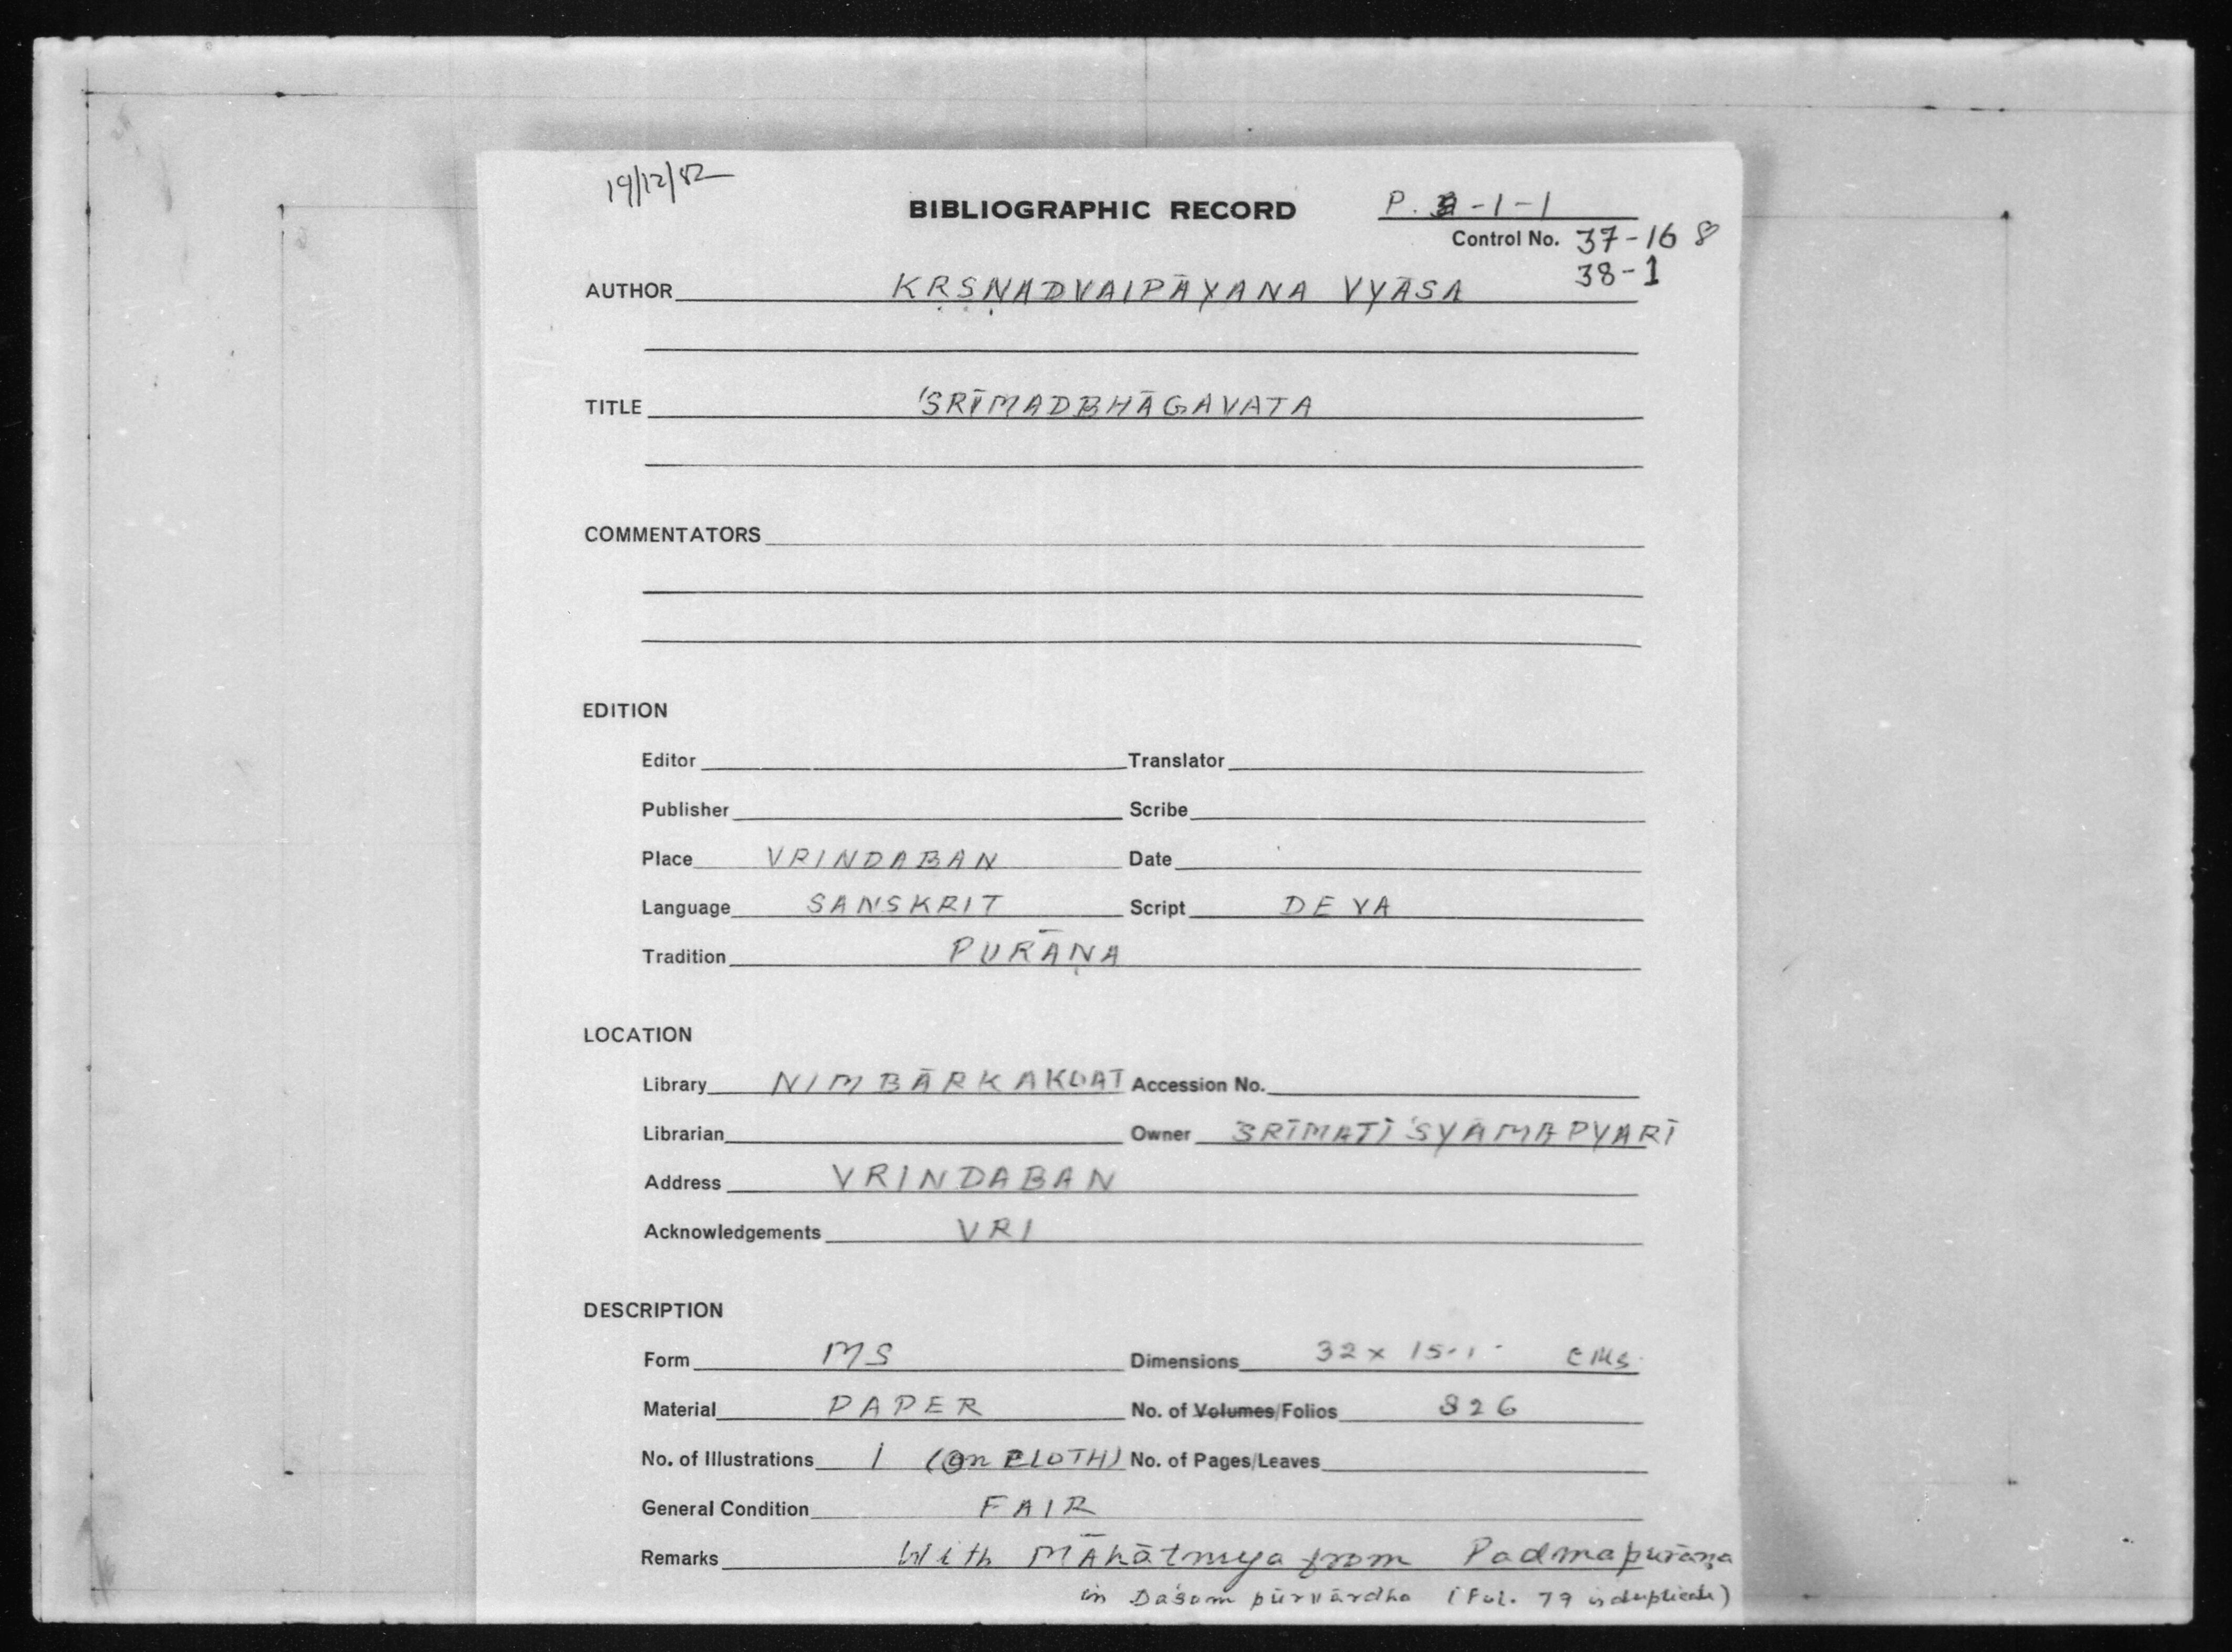 19/12/82
BIBLIOGRAPHIC RECORD P. -1-1
Control No. 37-16 8
38-1
AUTHOR KṚṢṆADVAIPĀYANA VYĀSA
TITLE ŚRĪMADBHĀGAVATA
COMMENTATORS
EDITION
Editor Translator
Publisher Scribe
Place VRINDABAN Date
Language SANSKRIT Script DEVA
Tradition PURĀṆA
LOCATION
Library NIMBĀRKAKOAT Accession No.
Librarian Owner ŚRĪMATĪ ŚYĀMAPYARĪ
Address VRINDABAN
Acknowledgements VRI
DESCRIPTION
Form MS Dimensions 32 x 15.1 CMS.
Material PAPER No. of Volumes/Folios 826
No. of Illustrations 1 (On CLOTH) No. of Pages/Leaves
General Condition FAIR
Remarks With Māhātmya from Padmapurāṇa
in Daśam pūrvārdha (Fol. 79 is duplicate)